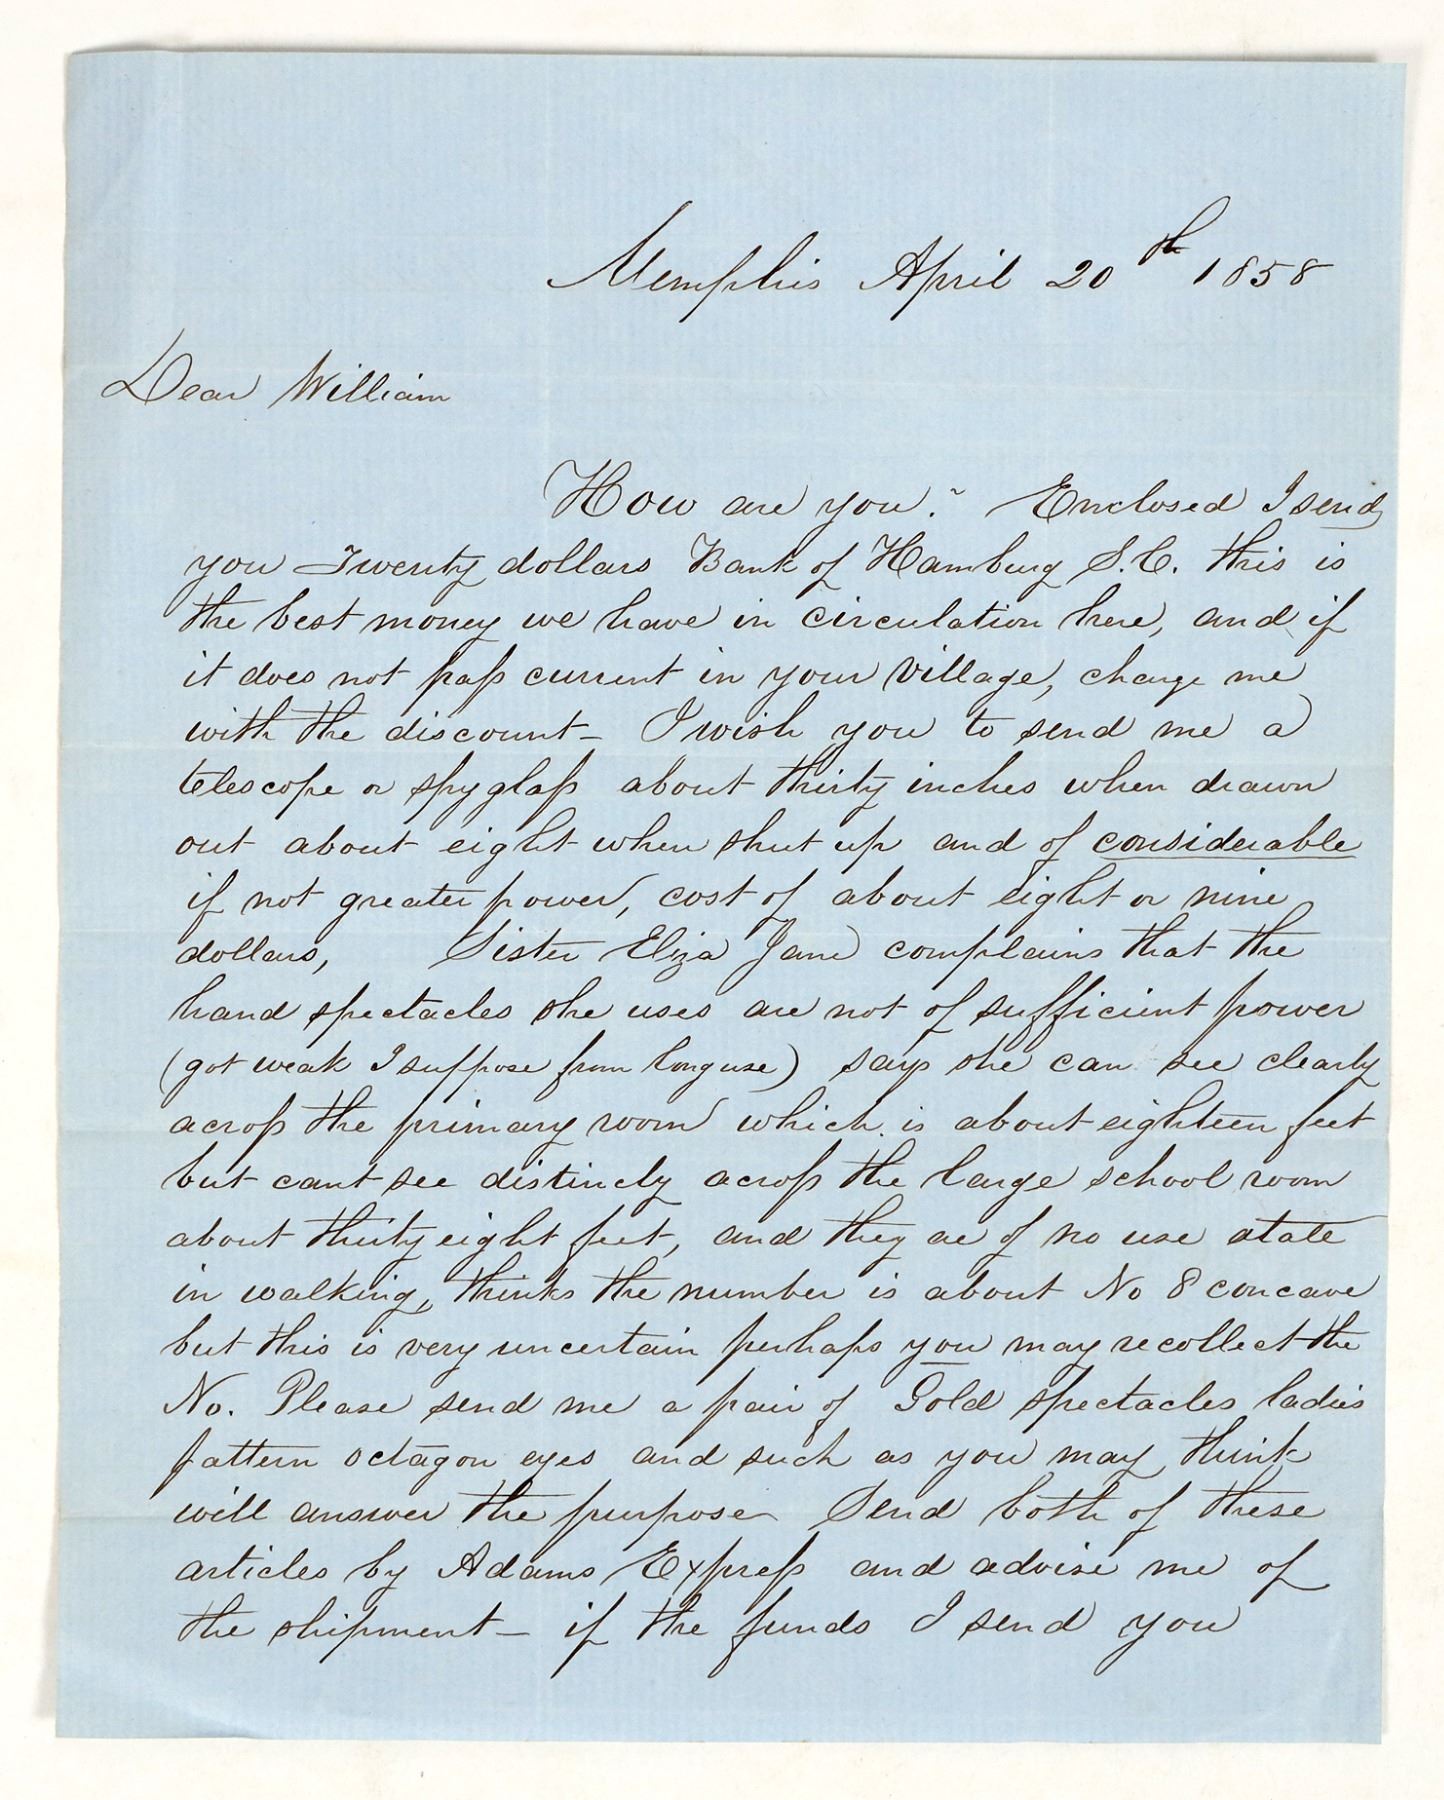 Memphis April 20th 1858
Dear William
How are you? Enclosed I send
you Twenty dollars Bank of Hamburg S.C. this is
the best money we have in circulation here, and if
it does not pass current in your village, charge me
with the discount – I wish you to send me a
telescope or spyglass about thirty inches when drawn
out about eight when shut up and of considerable
if not greater power, cost of about eight or nine
dollars, Sister Eliza Jane complains that the
hand spectacles she uses are not of sufficient power
(got weak I suppose from long use) says she can see clearly
across the primary room which is about eighteen feet
but cant see distincly across the large school room
about thirty eight feet, and they are of no use atall
in walking, thinks the number is about No 8 concave
but this is very uncertain perhaps you may recollect the
No. Please send me a pair of Gold spectacles ladies
pattern octagon eyes and such as you may think
will answer the purpose Send both of these
articles by Adams Express and advise me of
the shipment – if the funds I send you